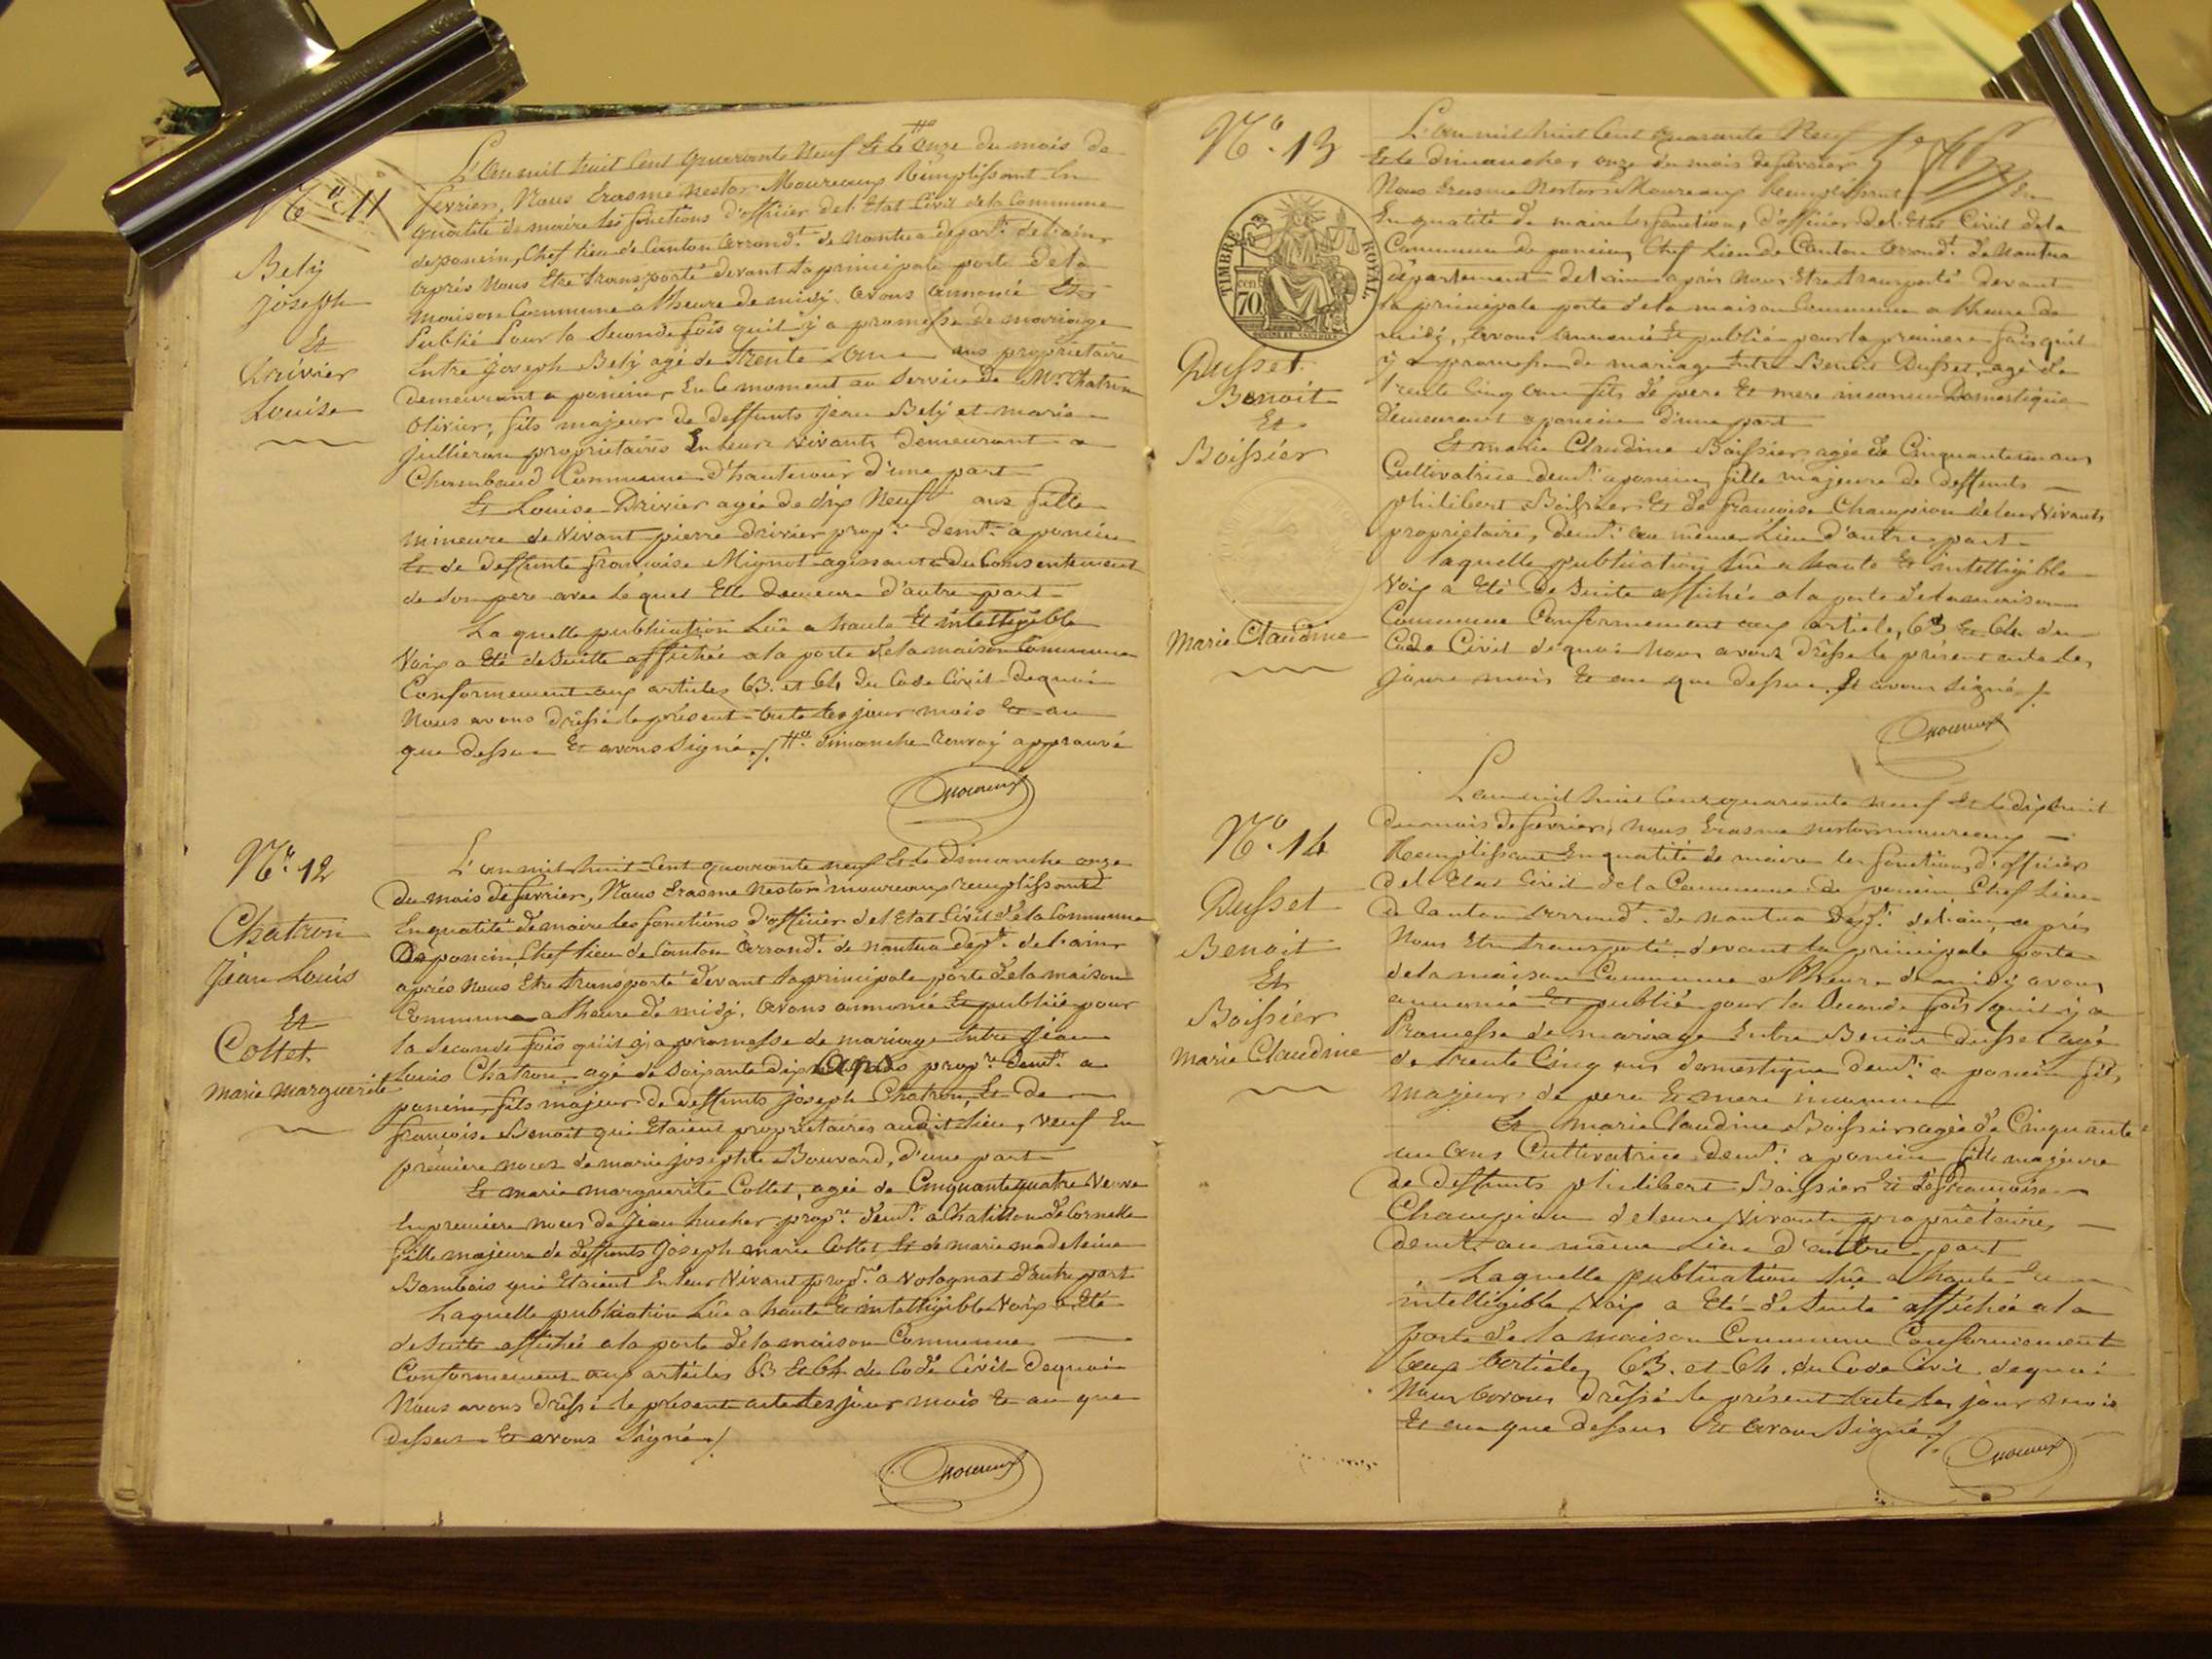 N.º 11
Bely
joseph
Et
Drivier
Louise
L'an mil huit Cent quarante Neuf Et le #ª onze du mois de
fevrier, Nous Erasme Nestor Moureaux Remplissant En
qualité de maire les fonctions d'officier de l'Etat Civil de la Commune
de poncin, Chef lieu de Canton arrond.t de Nantua depar.t de l'ain,
après Nous Etre transporté devant la principale porte de la
maison Commune a l'heure de midi avons annoncé Et
Publié Pour la Seconde fois qu'il y a promesse de mariage
Entre Joseph Bely agé de trente ans propriétaire
demeurant a poncin, En le moment au Service de Mr Chatron
Olivier, fils majeur de deffunts jean Bely et marie
jullieron propriétaires En leur vivants demeurant a
Chambaud Commune d'hautecour d'une part
Et Louise Drivier agée de dix Neuf ans fille
mineure de Vivant pierre drivier prop.re dem.t a poncin
Et de deffunte françoise Mignot agissante du Consentement
de son pere avec lequel Elle demeure d'autre part
La quelle publication Lûe a haute Et intelligible
Voix a Eté de Suitte affichée a la porte de la maison Commune
Conformement aux articles 63. et 64 du Code Civil dequoi
Nous avons dressé le présent acte les jour mois Et an
que dessus Et avons signé ./. #ª. dimanche renvoi approuvé
Moureaux
N.º 12
Chatron
Jean Louis
Et
Collet
Marie Marguerite
L'an mil huit Cent quarante neuf Et le Dimanche onze
du mois de fevrier, Nous Erasme Nestor moureaux remplissant
En qualité de maire les fonctions d'officier de l'Etat Civil de la Commune
De poncin Chef lieu de Canton arrond.t de nantua dép.t de l'ain
après Nous Etre transporté devant la principale porte de la maison
Commune a l'heure de midi, avons annoncé Et publié pour
la Seconde fois qu'il y a promesse de mariage Entre Jean
Louis Chatron agé de Soixante dix ans prop.re dem.t a
poncin, fils majeur de deffunts joseph Chatron, Et de
françoise Benoit qui Etaient propriétaires au dit lieu, veuf En
première noces de marie josephte Bouvard, d'une part
Et marie marguerite Collet, agée de Cinquante quatre Veuve
En premiere noces de Jean hucher prop.re dem.t a Chatillon de Cornelle
fille majeure de deffunts Joseph marie Collet Et de marie madeleine
Bambois qui Etaient En leur Vivant prop.res a Volognat d'autre part
Laquelle publication Lûe a haute Et intelligible Voix a Eté
de Suite affichée a la porte de la maison Commune
Conformement aux articles 63 Et 64 du Code Civil dequoi
Nous avons dressé le présent acte les jour mois Et an que
dessus Et avons Signé ./.
Moureaux
N.º 13
TIMBRE ROYAL.
70 cen
Dusset
Benoit
Et
Boissier
Marie Claudine
L'an mil huit Cent quarante Neuf
Et le dimanche, onze du mois de fevrier,
Nous Erasme Nestor Moureaux Remplissant En
En qualité de maire les fonctions d'officier de l'Etat Civil de la
Commune de poncin, Chef lieu de Canton arrond.t de Nantua
département de l'ain après Nous Etre transporté devant
la principale porte de la maison Commune a l'heure de
midi, avons annoncé Et publié pour la premiere fois qu'il
y a promesse de mariage Entre Benoit Dusset, agé de
trente Cinq ans fils de pere Et mere inconnus Domestique
demeurant a poncin d'une part
Et marie Claudine Boissier, agée de Cinquante un ans
Cultivatrice dem.t a poncin, fille majeure de deffunts
philibert Boissier Et de françoise Champion de leur Vivants
propriétaire, dem.t au même Lieu d'autre part
laquelle publication lûe a haute Et intelligible
Voix a Eté de Suite affichée a la porte de la maison
Commune Conformement aux article, 63 Et 64 du
Code Civil dequoi Nous avons dressé le présent acte les
jours mois Et an que dessus Et avons signé ./.
Moureaux
N.º 14
Dusset
Benoit
Et
Boissier
Marie Claudine
L'an mil huit Cent quarante neuf Et le dix huit
du mois de fevrier, Nous Erasme nestor moureaux
Remplissant En qualité de maire les fonctions d'officier
de l'Etat Civil de la Commune de poncin Chef lieu
de Canton arrond.t de Nantua dép.t de l'ain, après
Nous Etre transporté devant la principale porte
de la maison Commune a l'heure de midi avons
annoncé Et publié pour la Seconde fois qu'il y a
Promesse de mariage Entre Benoit Dusset agé
de trente Cinq ans domestique dem.t a poncin fils
majeur de pere Et mere inconnus
Et marie Claudine Boissier agée de Cinquante
un ans Cultivatrice dem.t a poncin fille majeure
de deffunts philibert Boissier Et de françoise
Champion de leurs Vivants propriétaires,
dem.t au même Lieu d'autre part
Laquelle publication lûe a haute Et
intelligible Voix a Eté de Suite affichée a la
porte de la maison Commune Conformement
aux articles 63. et 64. du Code Civil dequoi
Nous avons dressé le présent acte les jour mois
Et an que dessus Et avons signé ./.
Moureaux